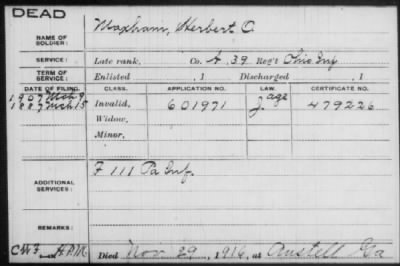 DEAD
NAME OF SOLDIER: Moxham, Herbert O.
SERVICE: Late rank, Co. A, 39 Reg't Ohio Inf
TERM OF SERVICE: Enlisted , 1 Discharged , 1
DATE OF FILING. CLASS. APPLICATION NO. LAW. CERTIFICATE NO.
1907 Mch 9
1887 Mch 15 Invalid, 601971 J age 479226
Widow,
Minor,
ADDITIONAL SERVICES: F 111 Pa Inf.
REMARKS:
Died Nov. 29, 1916, at Austell Ga